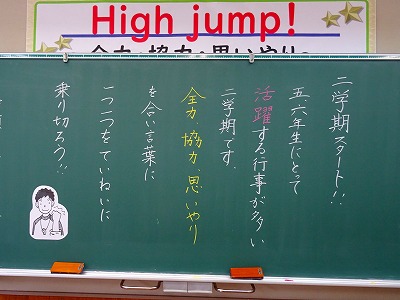 High jump!
全力・協力・思いやり
二学期スタート!!
五六年生にとって
活躍する行事が多い
二学期です。
全力、協力、思いやり
を合い言葉に
一つ一つをていねいに
乗り切ろう!!